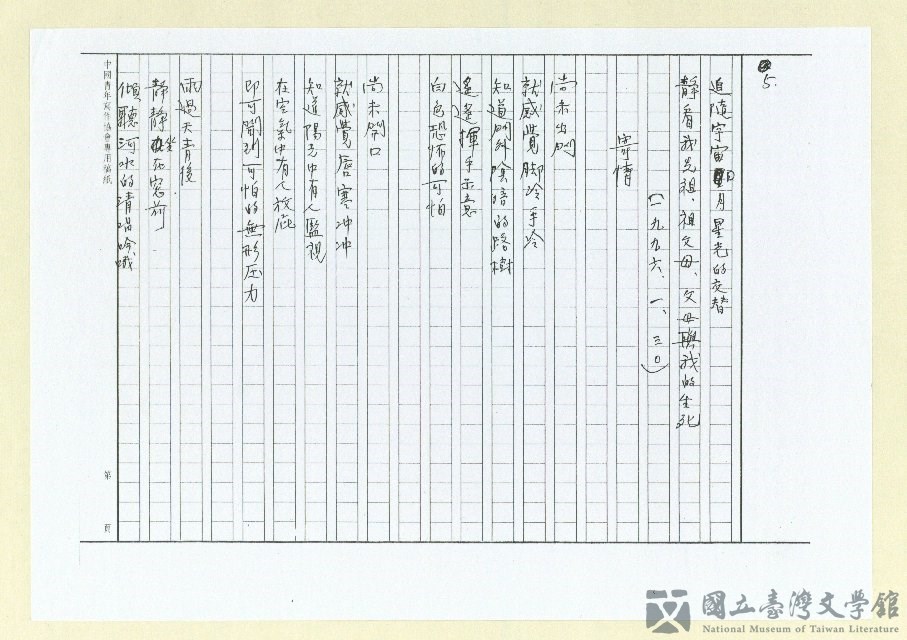 5.
追隨宇宙日月星光的交替
靜看我先祖、祖父母、父母聯我的生死
(一九九六、一、三○)
寄情
尚未出門
就感覺腳冷手冷
知道門外陰暗的路樹
遙遙揮手示意
白色恐怖的可怕
尚未開口
就感覺唇寒沖沖
知道陽光中有人監視
在空氣中有人放屁
即可聞到可怕的無形压力
雨過天青後
靜靜坐死窓前
傾聽河水的清唱吟哦
中國青年寫作協會專用稿紙
第 頁
國立臺灣文學館
National Museum of Taiwan Literature